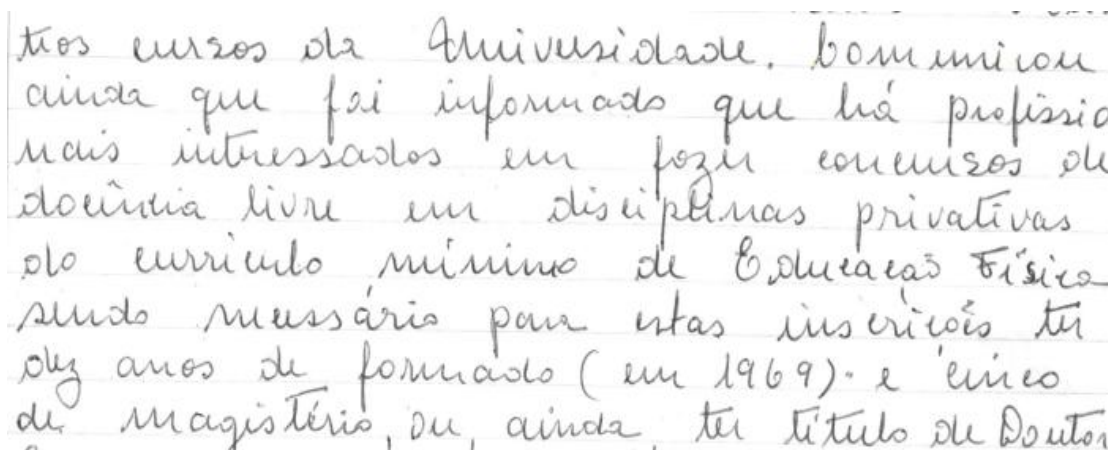 tros cursos da Universidade. Comunicou
ainda que foi informado que há profissio
nais interessados em fazer concursos de
docência livre em disciplinas privativas
do curriculo mínimo de Educação Física
sendo necessário para estas inscrições ter
dez anos de formado (em 1969). e cinco
de magistério, ou, ainda, ter título de Doutor